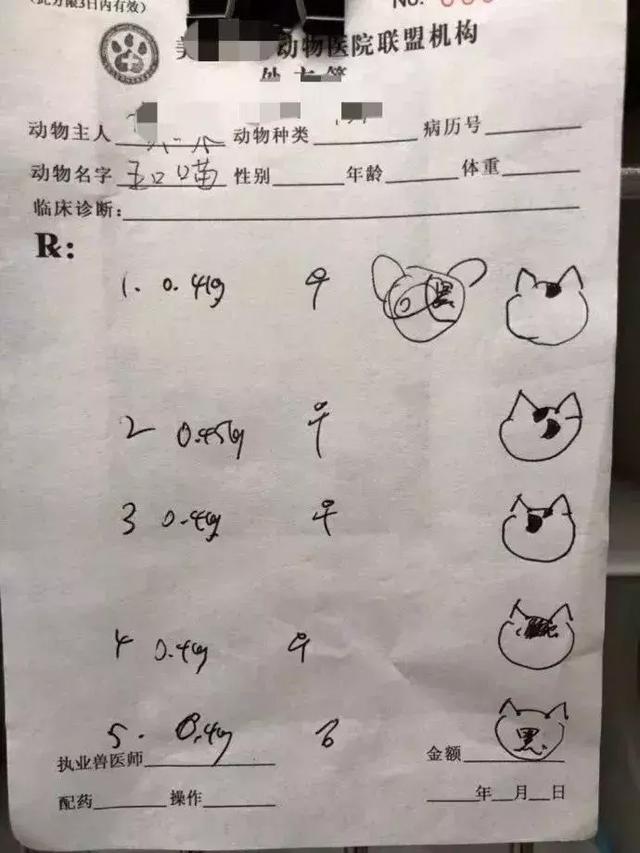 (此方限3日内有效) No.
动物医院联盟机构
处方笺
动物主人 动物种类 病历号
动物名字 五口喵 性别 年龄 体重
临床诊断:
Rx:
1. 0.41g ♀ 黑
2 0.45kg ♀
3 0.4kg ♀
4 0.4kg ♀
5. 0.4kg 黑
执业兽医师 金额
配药 操作 年 月 日